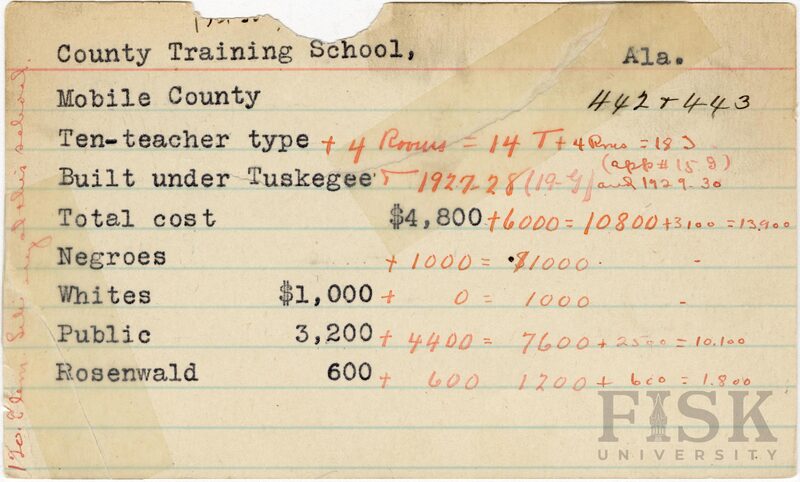 County Training School, Ala.
Mobile County 442 + 443
Ten-teacher type + 4 Rooms = 14 T + 4 Rms = 18 T
(app # 15-J)
Built under Tuskegee + 1927-28 (19-J) and 1929-30
Total cost $4,800 + 6000 = 10800 + 3100 = 13,900
Negroes + 1000 = $1000 - -
Whites $1,000 + 0 = 1000 -
Public 3,200 + 4400 = 7600 + 2500 = 10,100
Rosenwald 600 + 600 1200 + 600 = 1.800
at this school.
FISK
UNIVERSITY